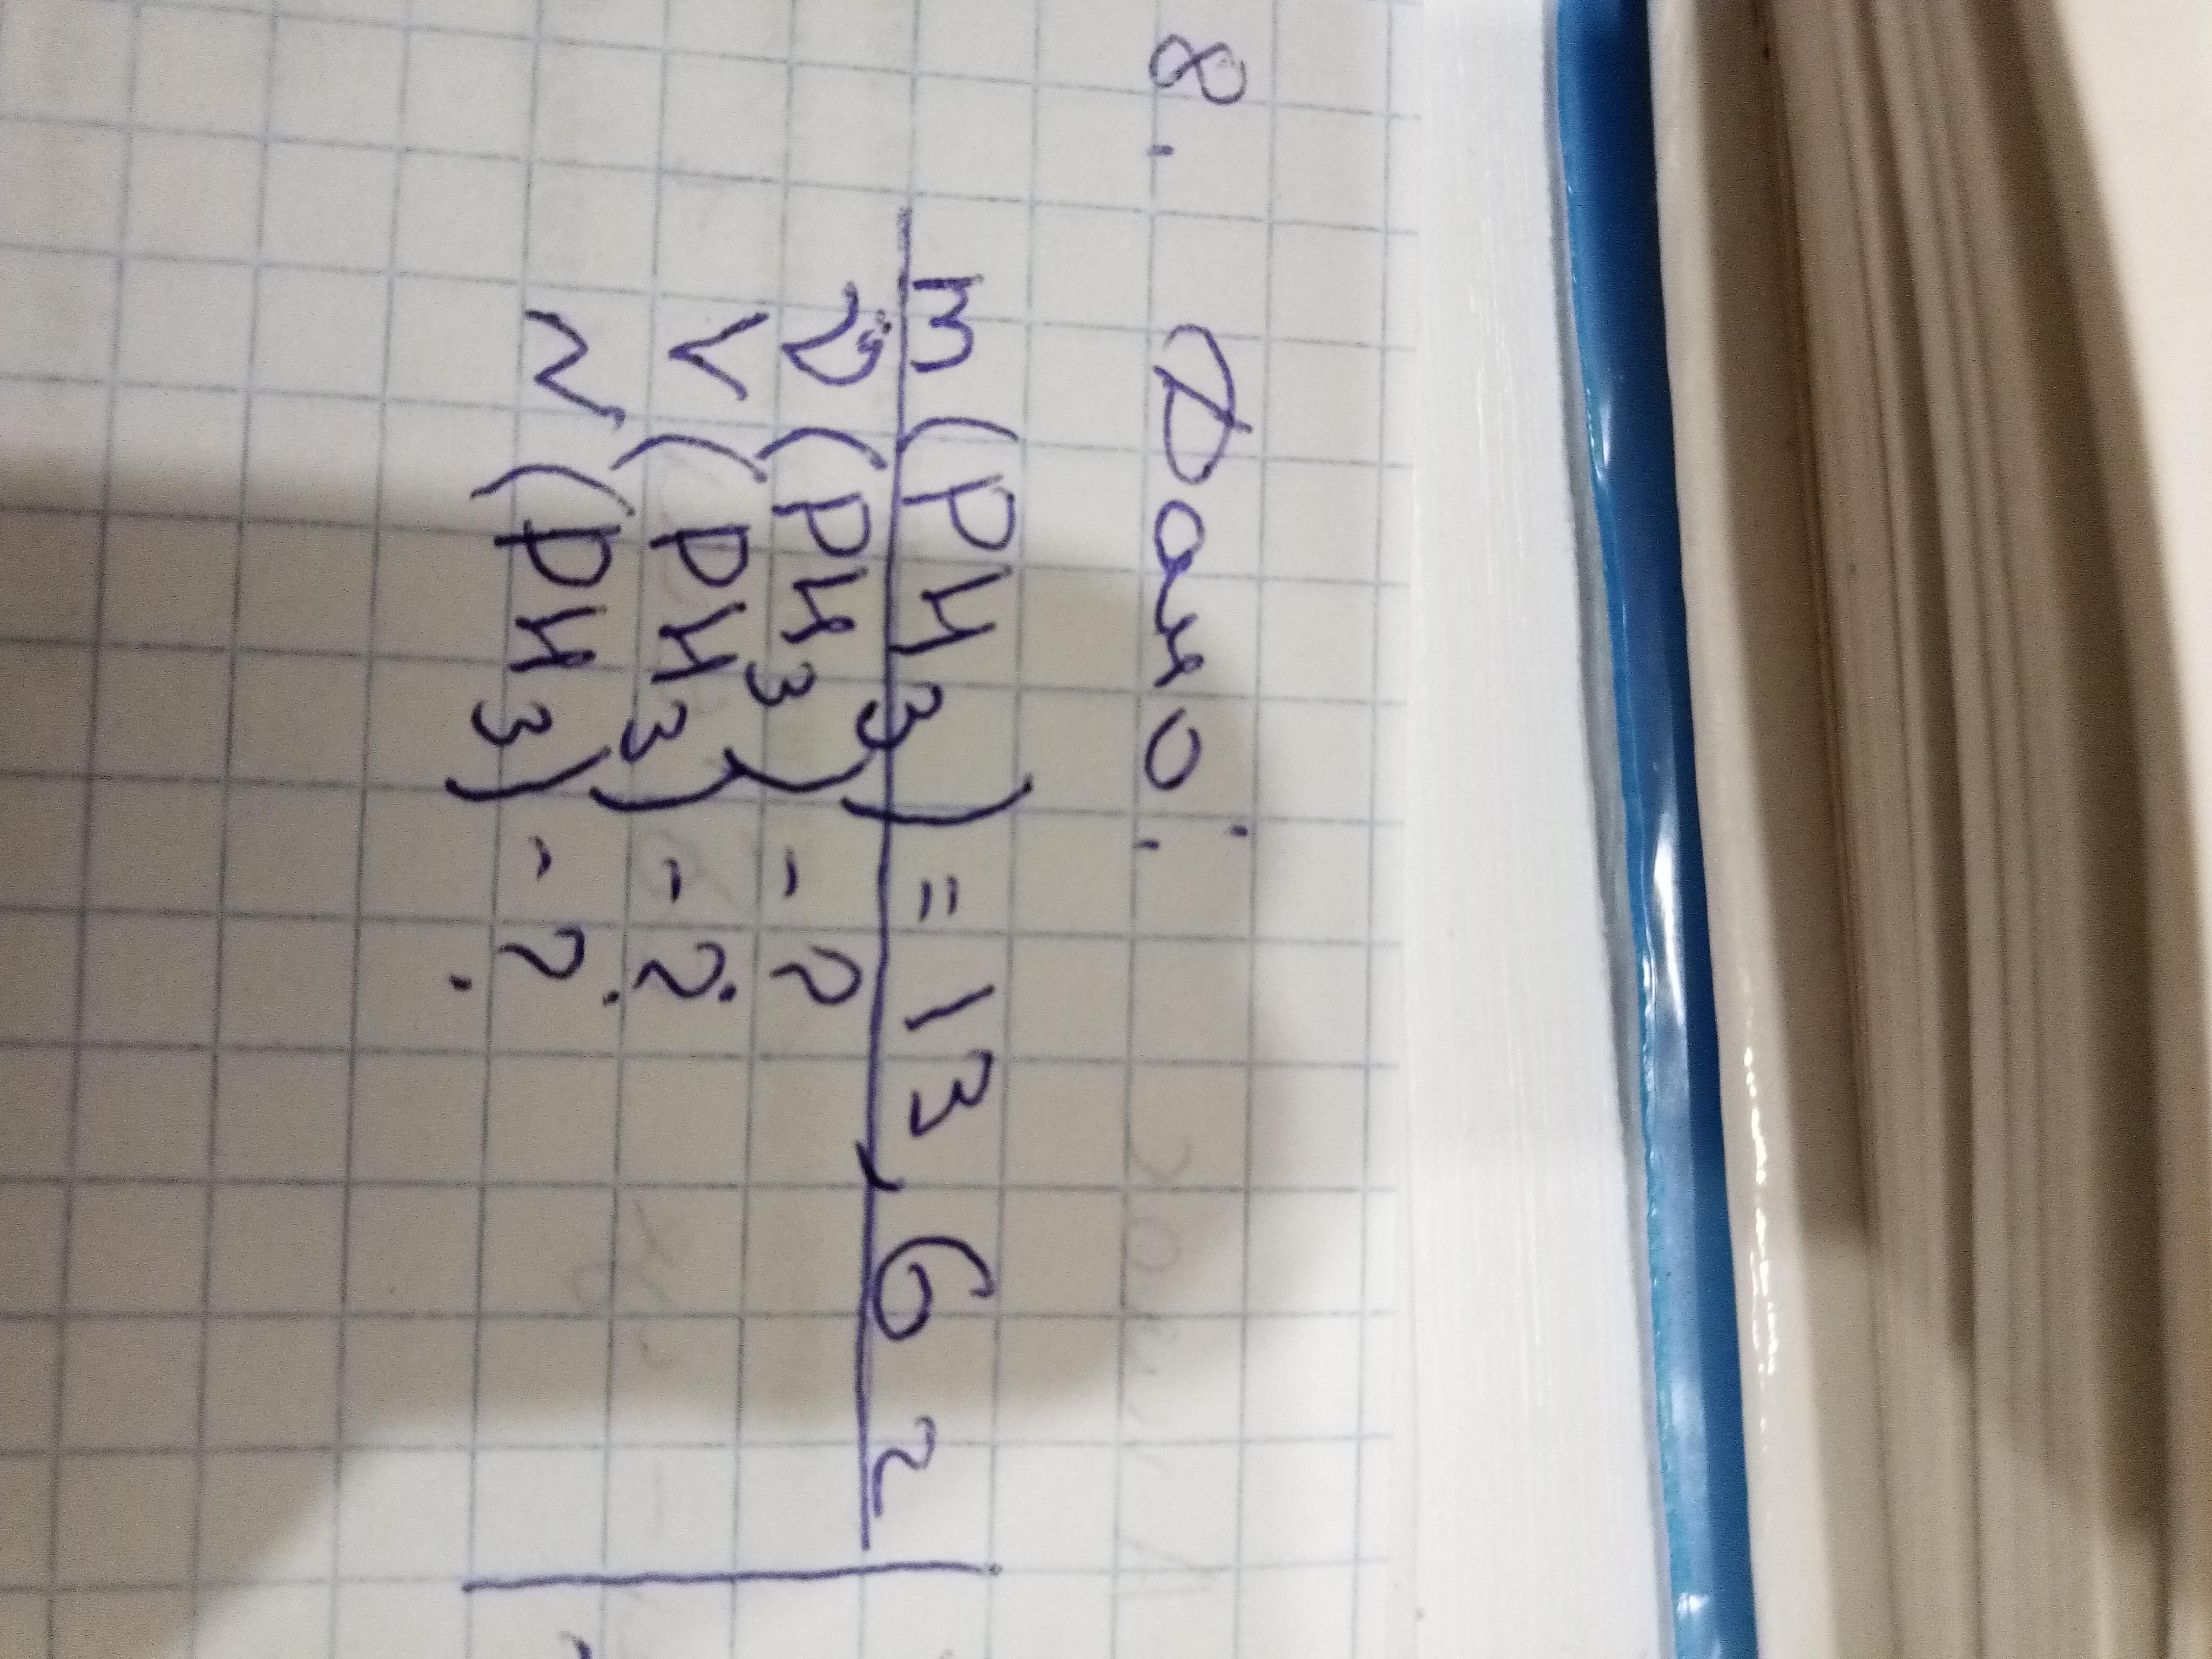 8. Дано:
m(PH3) = 13,6 г
ν(PH3) - ?
V(PH3) - ?
N(PH3) - ?